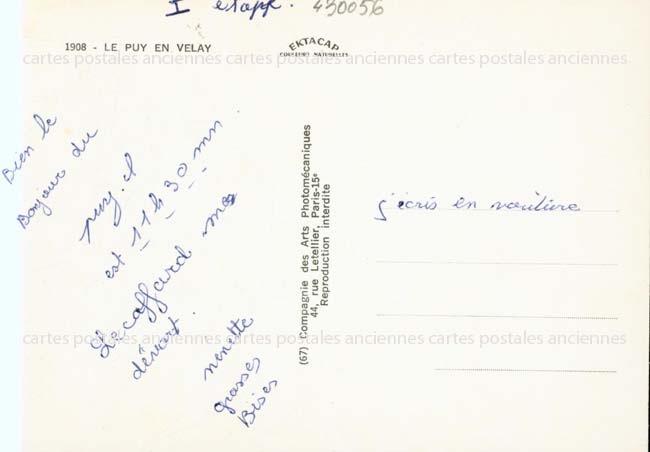 I etapp. 430056
1908 - LE PUY EN VELAY
EKTACAP
COULEURS NATURELLES
cartes postales anciennes cartes postales anciennes cartes postales anciennes
Bien le
Bonjour du
puy. il
est 11 h 30 mn
desert
nenette
grosses
Bises
(67) Compagnie des Arts Photomécaniques
44, rue Letellier, Paris-15e
Reproduction interdite
j'écris en voiture
cartes postales anciennes cartes postales anciennes cartes postales anciennes